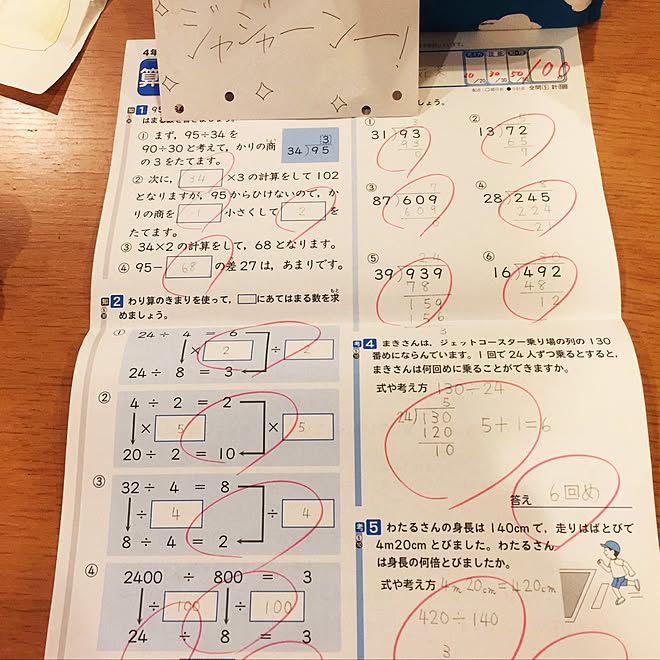 ジャジャーンー!
4年
算
20 30 50 100
1
はまる数を書きましょう。
① まず、95÷34を
90÷30と考えて、かりの商
の3をたてます。
3
34)95
② 次に、34×3の計算をして102
となりますが、95からひけないので、か
りの商を1小さくして2を
たてます。
③ 34×2の計算をして、68となります。
④ 95−68の差27は、あまりです。
2 わり算のきまりを使って、□にあてはまる数を求
めましょう。
①
24 ÷ 4 = 6
×2 ÷2
24 ÷ 8 = 3
②
4 ÷ 2 = 2
×5 ×5
20 ÷ 2 = 10
③
32 ÷ 4 = 8
÷4 ÷4
8 ÷ 4 = 2
④
2400 ÷ 800 = 3
÷100 ÷100
24 ÷ 8 = 3
ましょう。
①
3
31)93
93
0
②
5
13)72
65
7
③
7
87)609
609
0
④
8
28)245
224
21
⑤
24
39)939
78
159
156
3
⑥
30
16)492
48
12
4 まきさんは、ジェットコースター乗り場の列の130
番めにならんでいます。1回で24人ずつ乗るとすると、
まきさんは何回めに乗ることができますか。
式や考え方 130÷24
5
24)130
120
10
5+1=6
答え 6回め
5 わたるさんの身長は140cmで、走りはばとびで
4m20cmとびました。わたるさん
は身長の何倍とびましたか。
式や考え方 4m20cm=420cm
420÷140
3